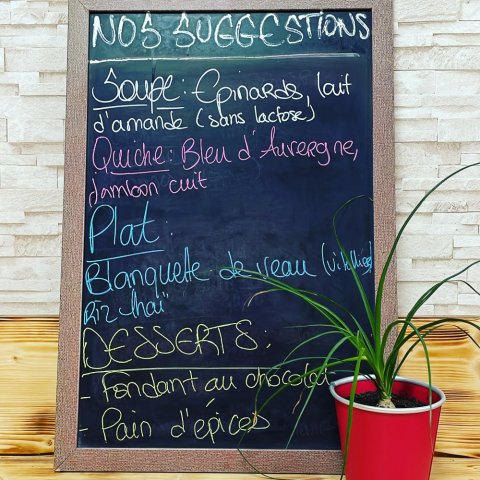 NOS SUGGESTIONS
Soupe : Epinards, lait
d'amande (sans lactose)
Quiche : Bleu d'Auvergne,
jambon cuit
Plat :
Blanquette de veau
Riz thaï
DESSERTS :
- Fondant au chocolat
- Pain d'épices